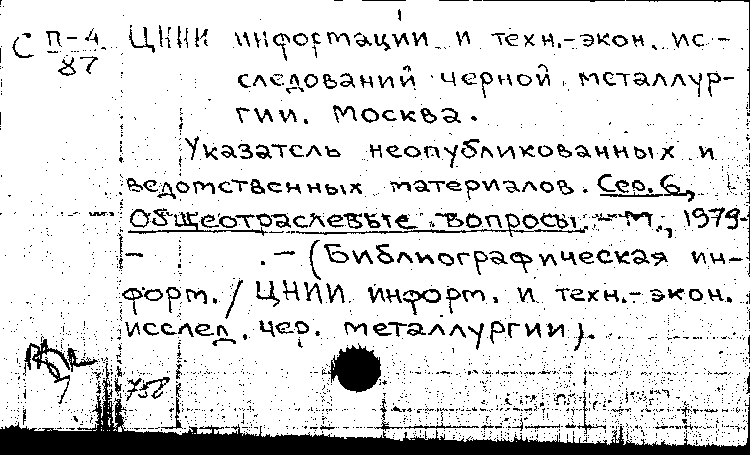 С П-4 ЦНИИ информации и техн.-экон. ис-
87
следований черной металлур-
гии. Москва.
Указатель неопубликованных и
ведомственных материалов. Сер. 6,
Общеотраслевые вопросы. - М., 1979-
- . - (Библиографическая ин-
форм. / ЦНИИ информ. и техн.-экон.
исслед. чер. металлургии).